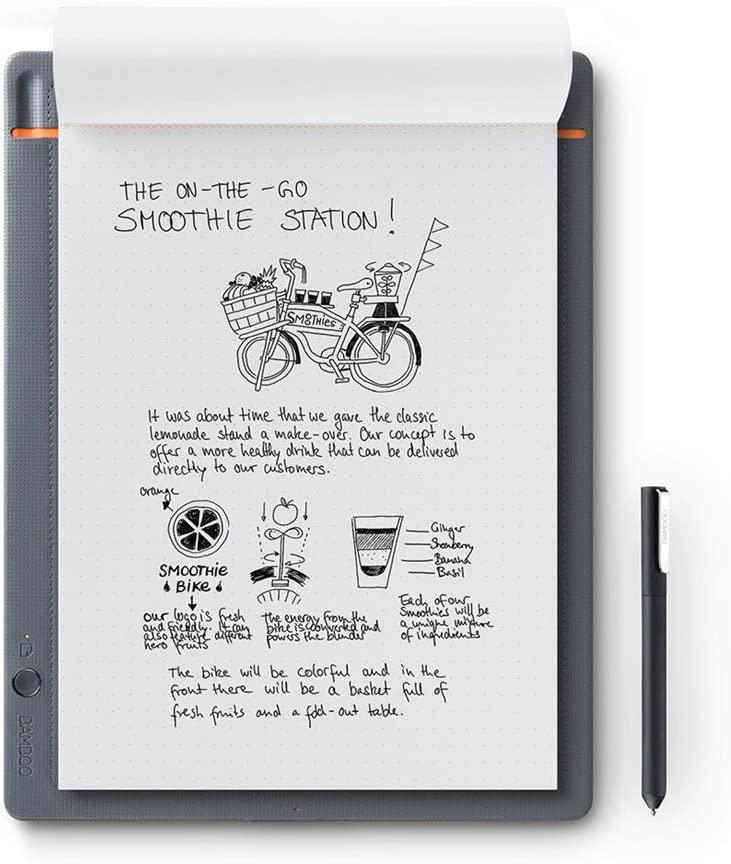 THE ON-THE-GO
SMOOTHIE STATION!
SMOOTHIES
It was about time that we gave the classic
lemonade stand a make-over. Our concept is to
offer a more healthy drink that can be delivered
directly to our customers.
orange
SMOOTHIE
BIKE
our logo is fresh
and friendly. It can
also feature different
hero fruits
the energy from the
bike is converted and
powers the blender
Ginger
Strawberry
Banana
Basil
Each of our
Smoothies will be
a unique mixture
of ingredients
The bike will be colorful and in the
front there will be a basket full of
fresh fruits and a fold-out table.
BAMBOO
BAMBOO